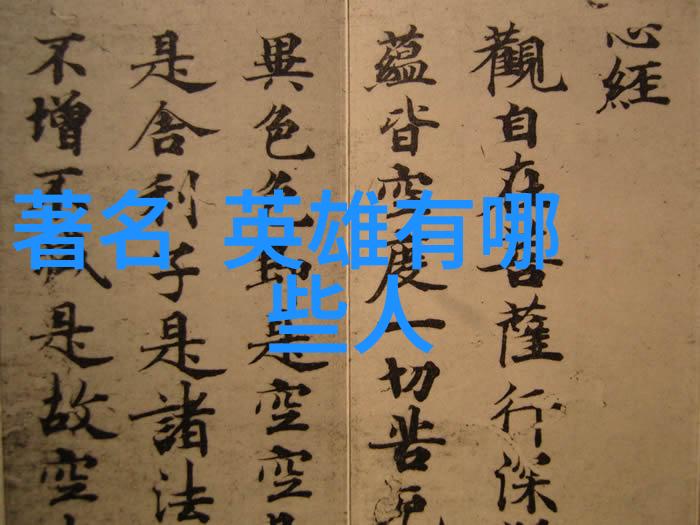 心經
觀自在菩薩行深
蘊皆空度一切苦厄
異色色即是空空
是舍利子是諸法
不增不減是故空
著名 英雄有哪
些人